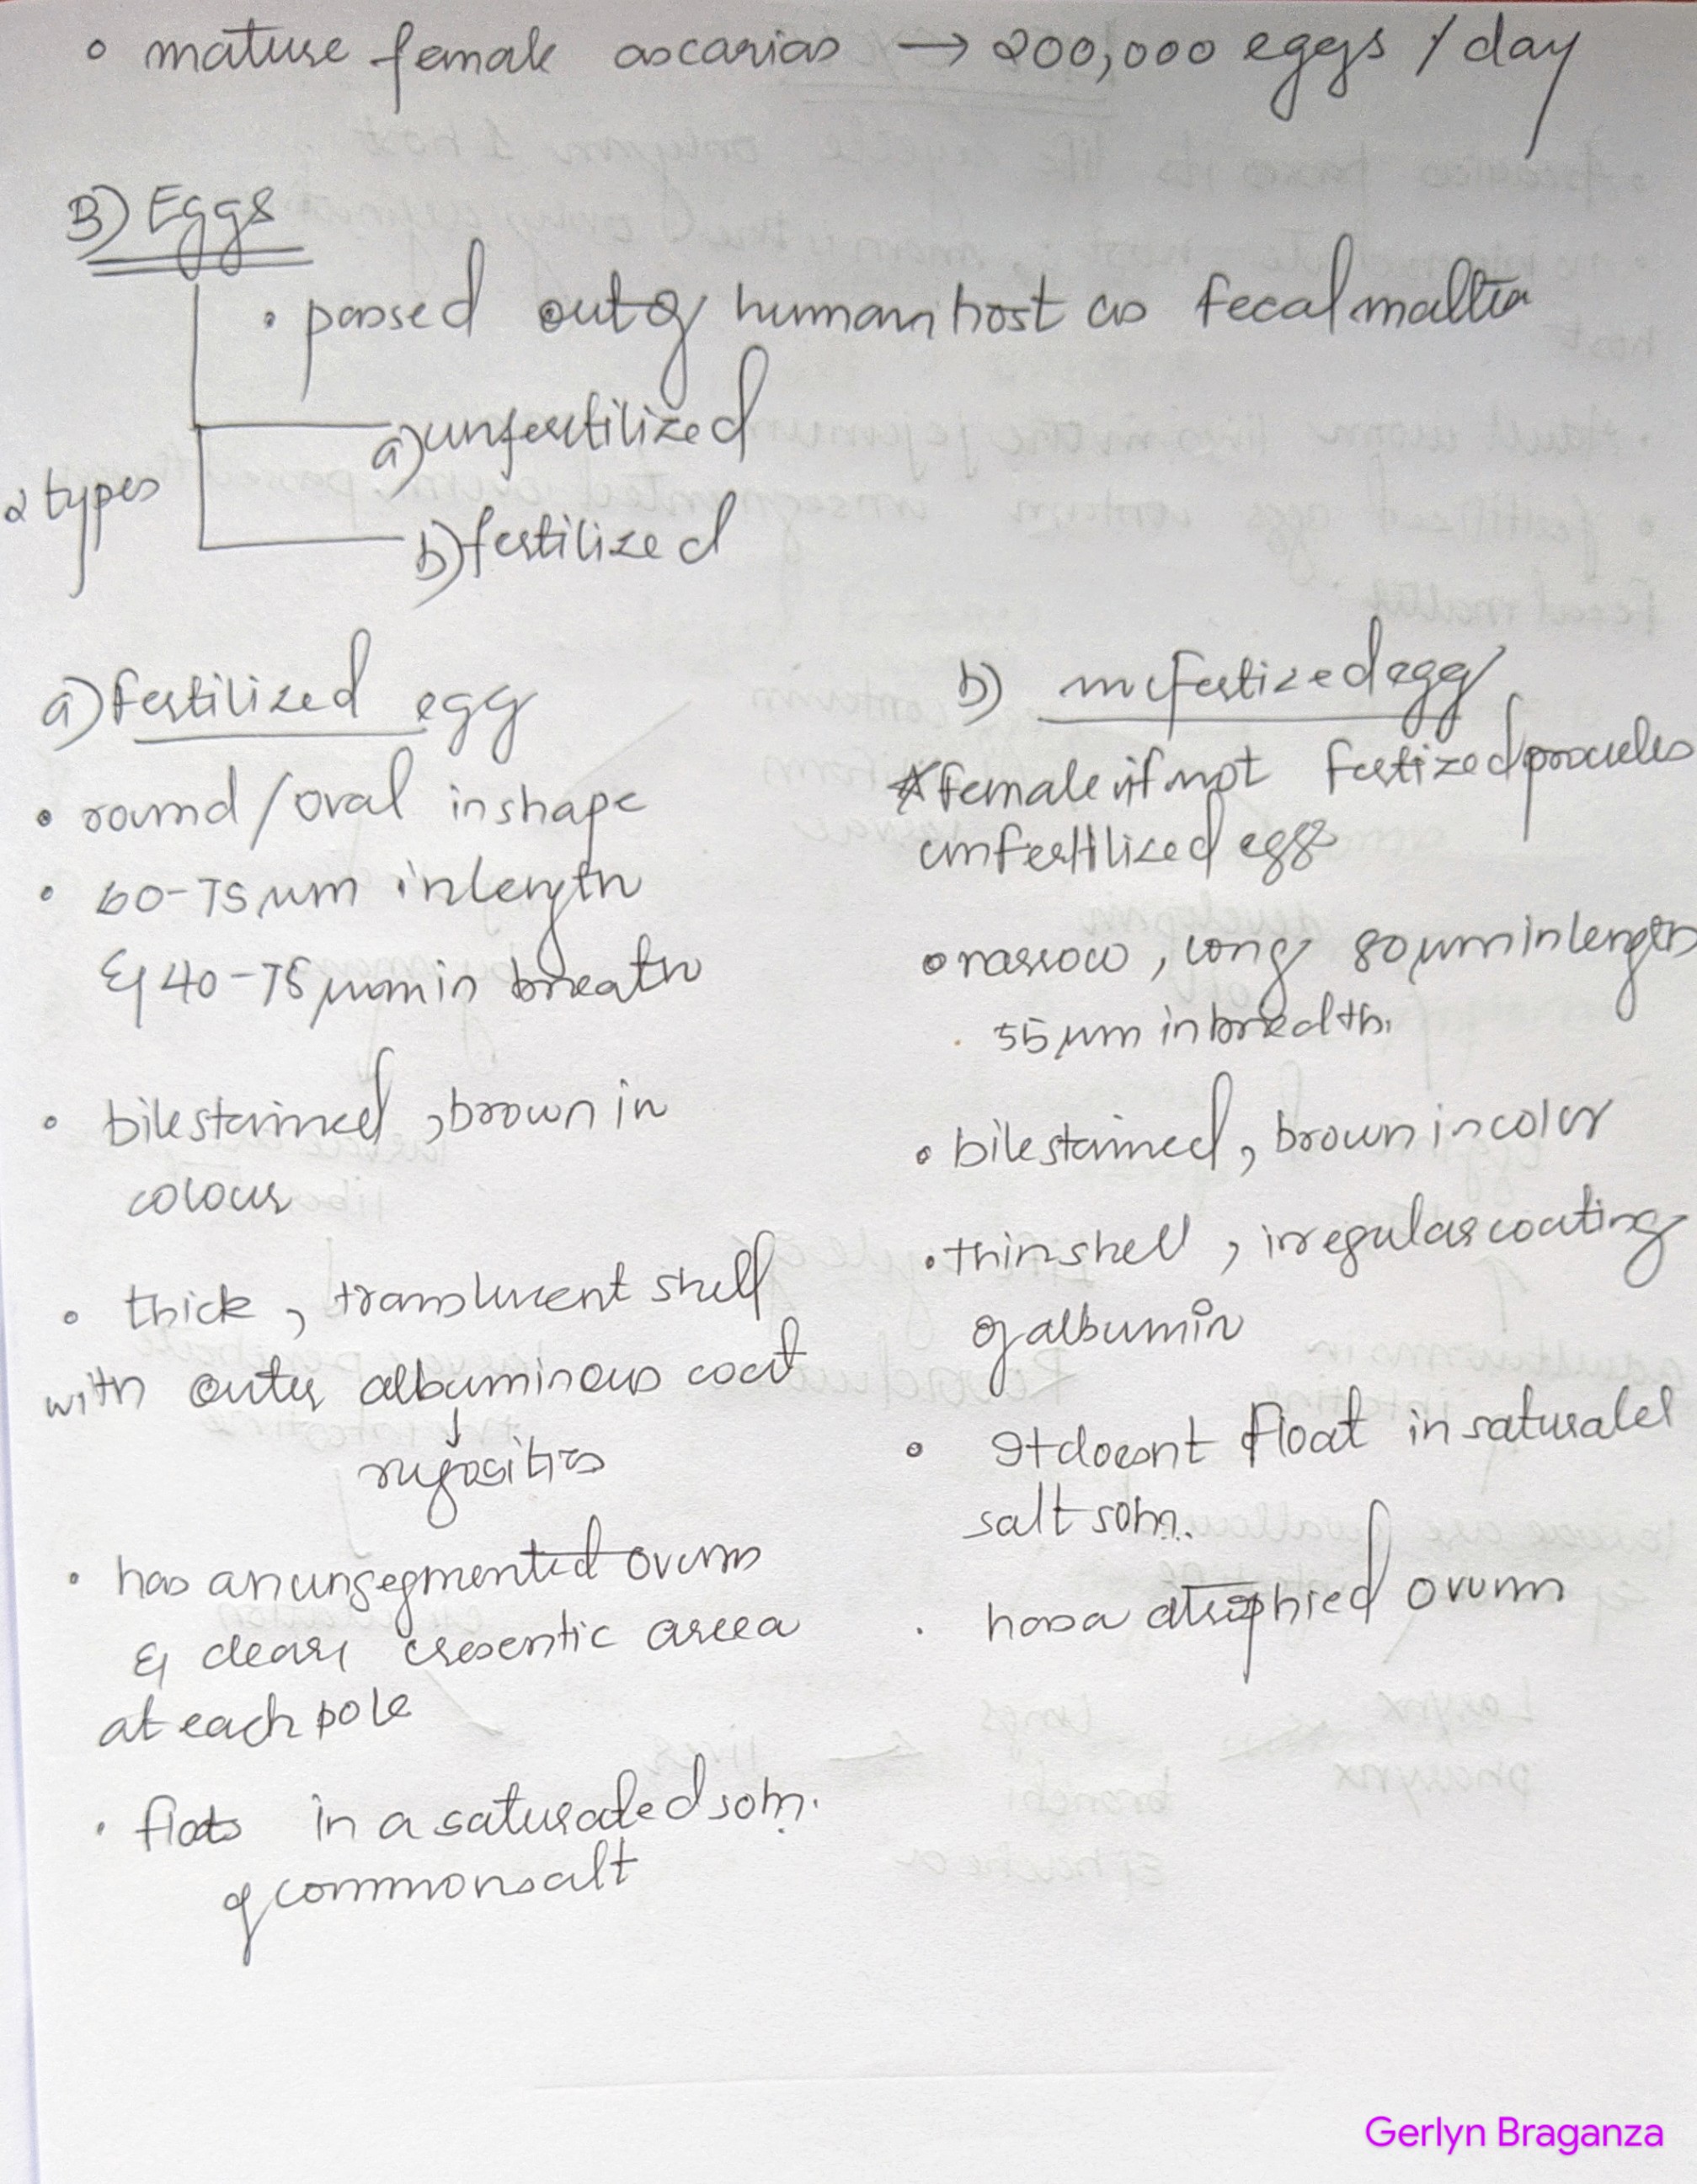 • mature female ascarias → 200,000 eggs / day
B) Eggs
• passed out of human host as fecal matter
a) unfertilized
2 types
b) fertilized
a) fertilized egg
• round / oval in shape
• 60-75 μm in length
& 40-75 μm in breath
• bile stained, brown in
colour
• thick, translucent shell
with outer albuminous coat
↓
rugosities
• has an unsegmented ovum
& clear cresentic area
at each pole
• floats in a saturated soln.
of common salt
b) unfertized egg
* female if not fertized produces
unfertilized eggs
• narrow, long 80 μm in length
55 μm in breadth.
• bile stained, brown in color
• thin shell, irregular coating
of albumin
• It doesnt float in saturated
salt soln.
• has a atrophied ovum
Gerlyn Braganza